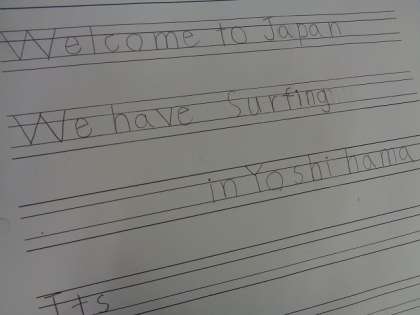 Welcome to Japan
We have Surfing
in Yoshihama
Its